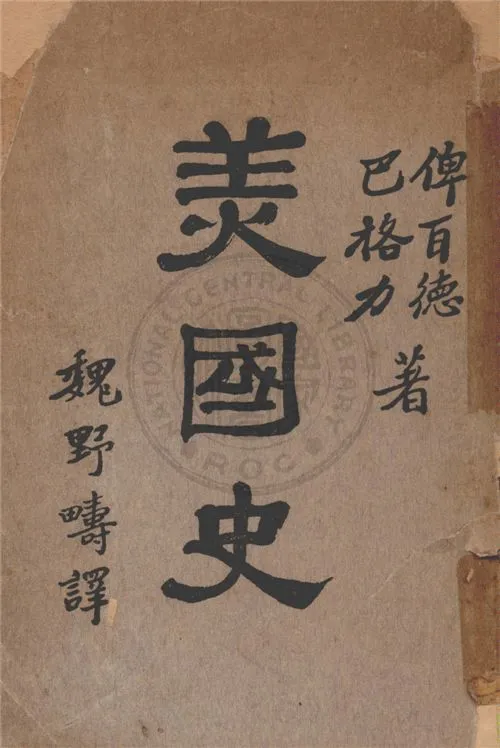 俾百德
巴格力
著
美國史
魏野疇譯
NATIONAL CENTRAL LIBRARY
R.O.C.